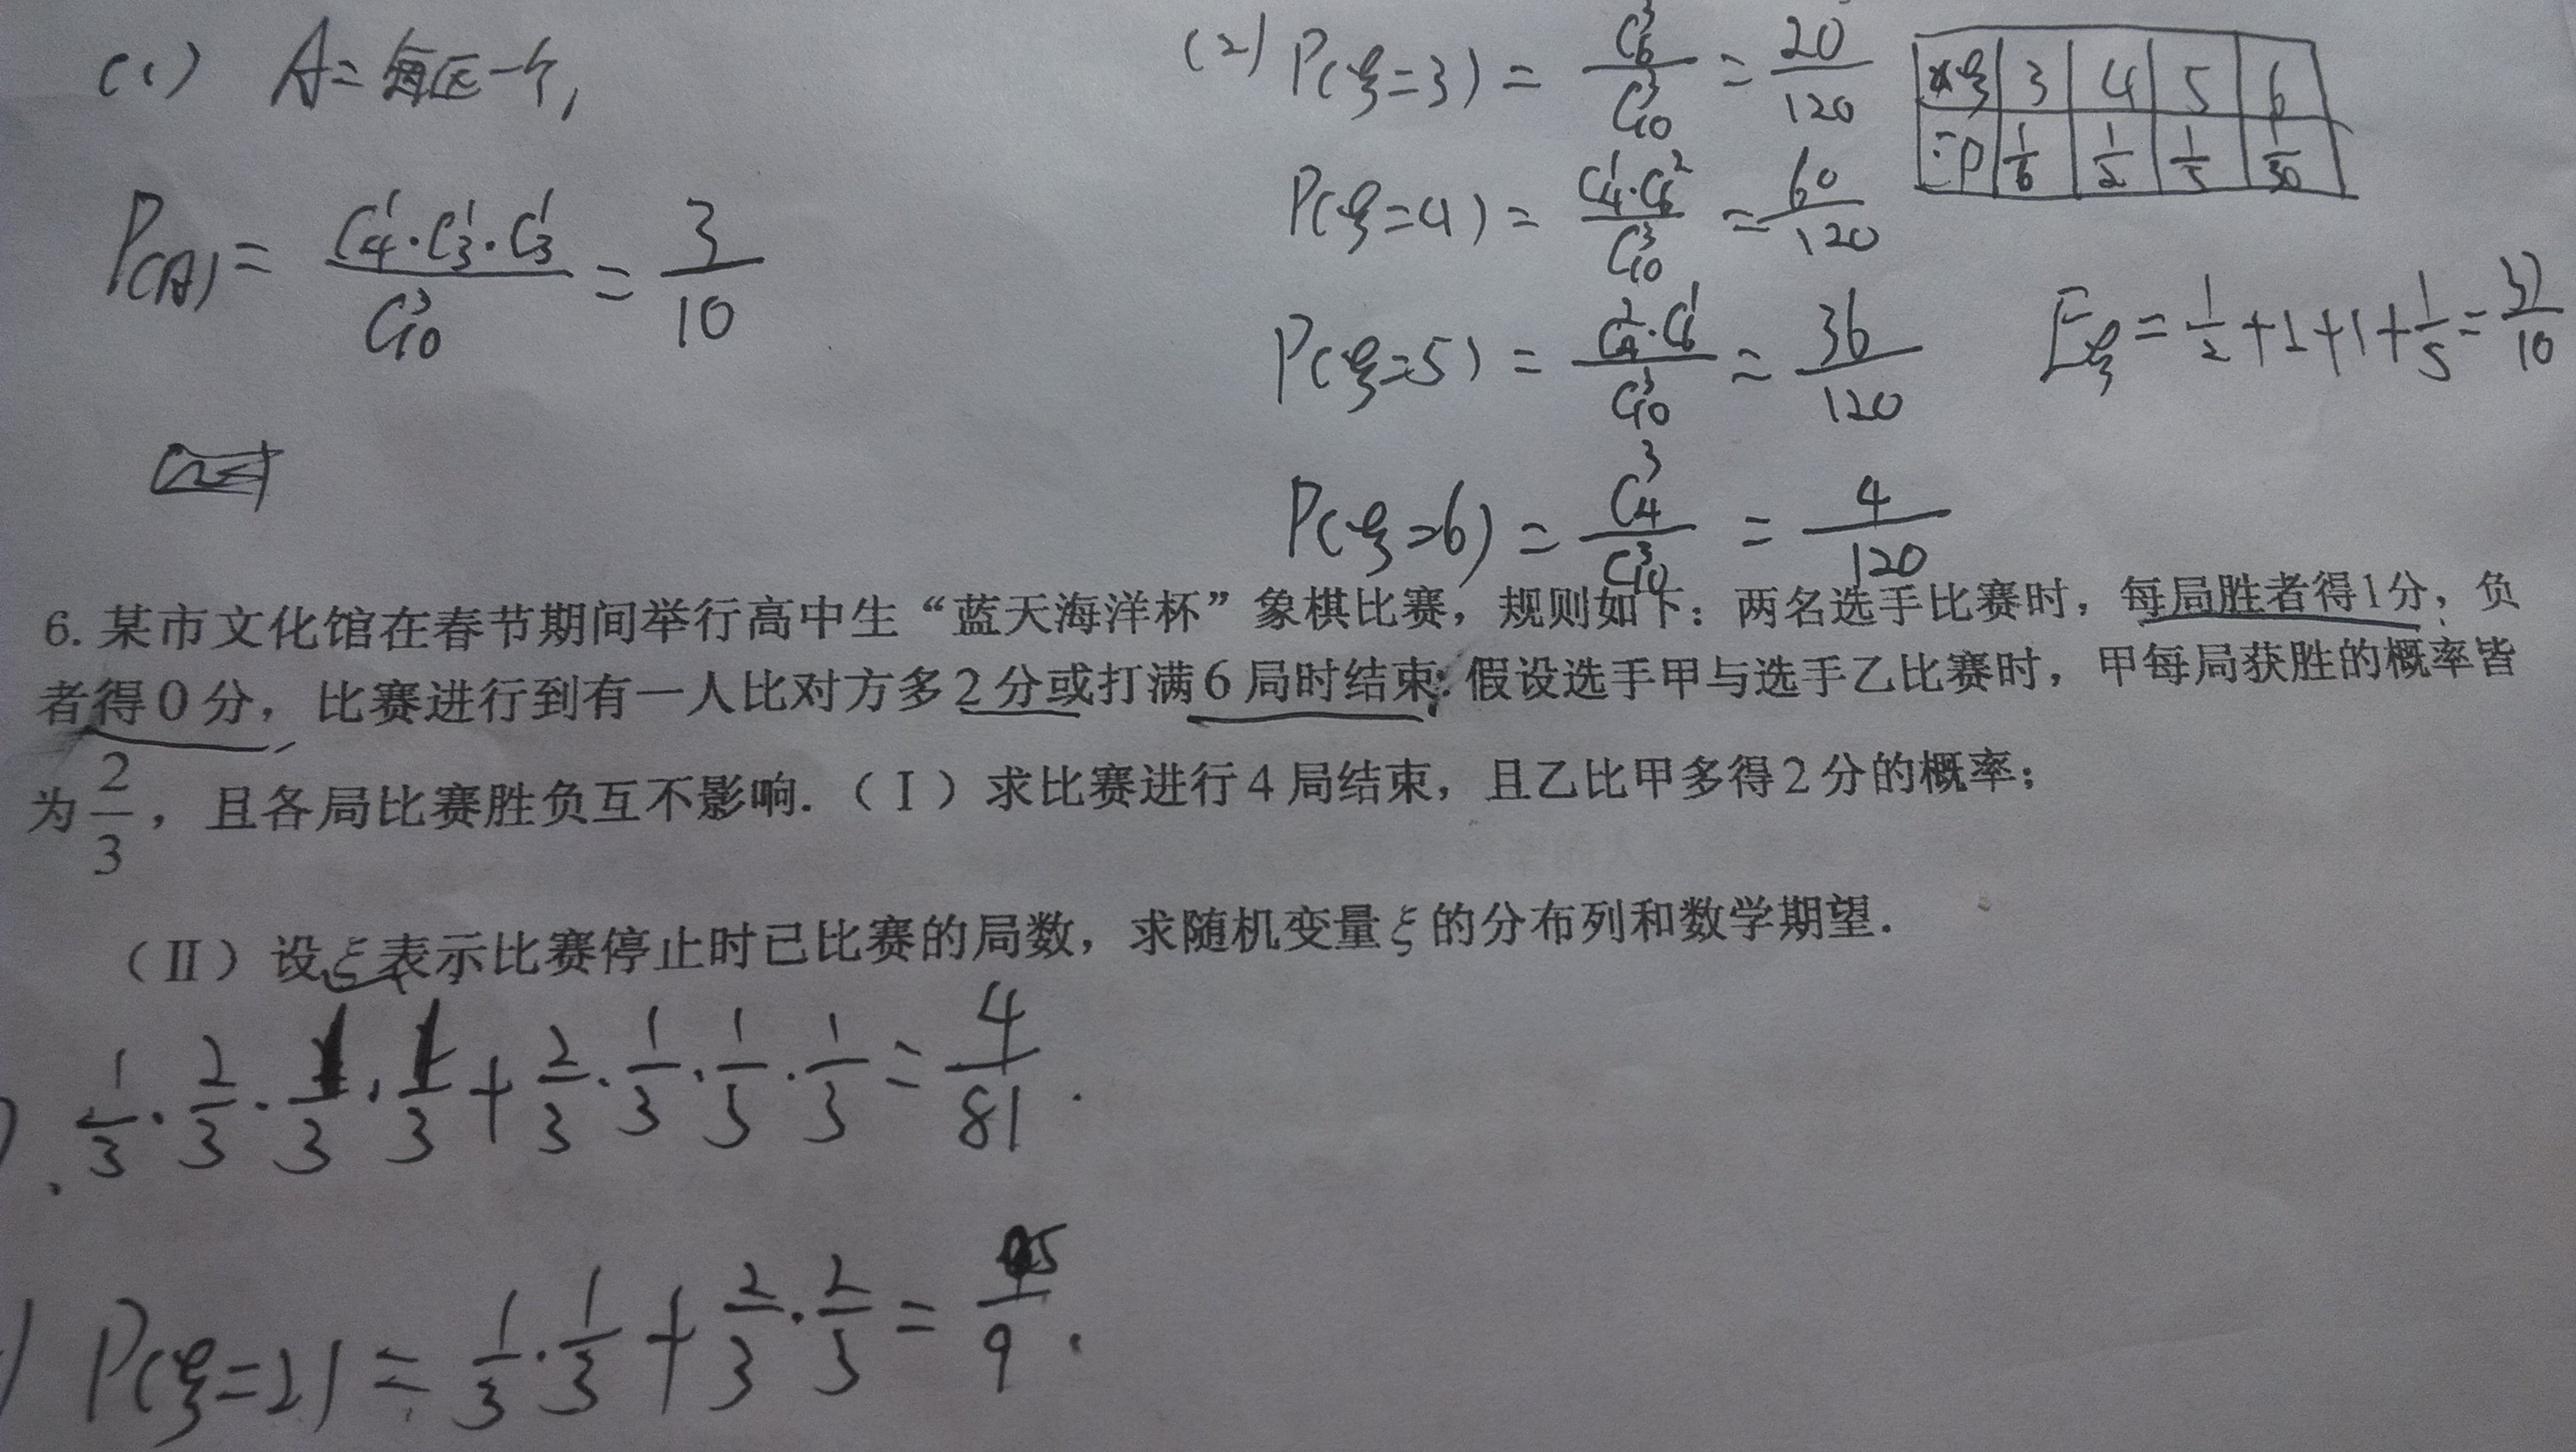 (1) A=每区一个,
P(A)= C₄¹·C₃¹·C₃¹/C₁₀³ = 3/10
(2) P(ξ=3) = C₆³/C₁₀³ = 20/120
P(ξ=4) = C₄¹·C₆²/C₁₀³ = 60/120
P(ξ=5) = C₄²·C₆¹/C₁₀³ = 36/120
P(ξ=6) = C₄³/C₁₀³ = 4/120
ξ 3 4 5 6
P 1/6 1/2 1/5 1/30
Eξ = 1/2+2+1+1/5 =
6. 某市文化馆在春节期间举行高中生“蓝天海洋杯”象棋比赛，规则如下：两名选手比赛时，每局胜者得1分，负
者得0分，比赛进行到有一人比对方多2分或打满6局时结束. 假设选手甲与选手乙比赛时，甲每局获胜的概率皆
为2/3，且各局比赛胜负互不影响.（Ⅰ）求比赛进行4局结束，且乙比甲多得2分的概率；
（Ⅱ）设ξ表示比赛停止时已比赛的局数，求随机变量ξ的分布列和数学期望.
1/3·2/3·1/3·1/3+2/3·1/3·1/3·1/3=4/81.
P(ξ=2)=1/3·1/3+2/3·2/3=5/9.